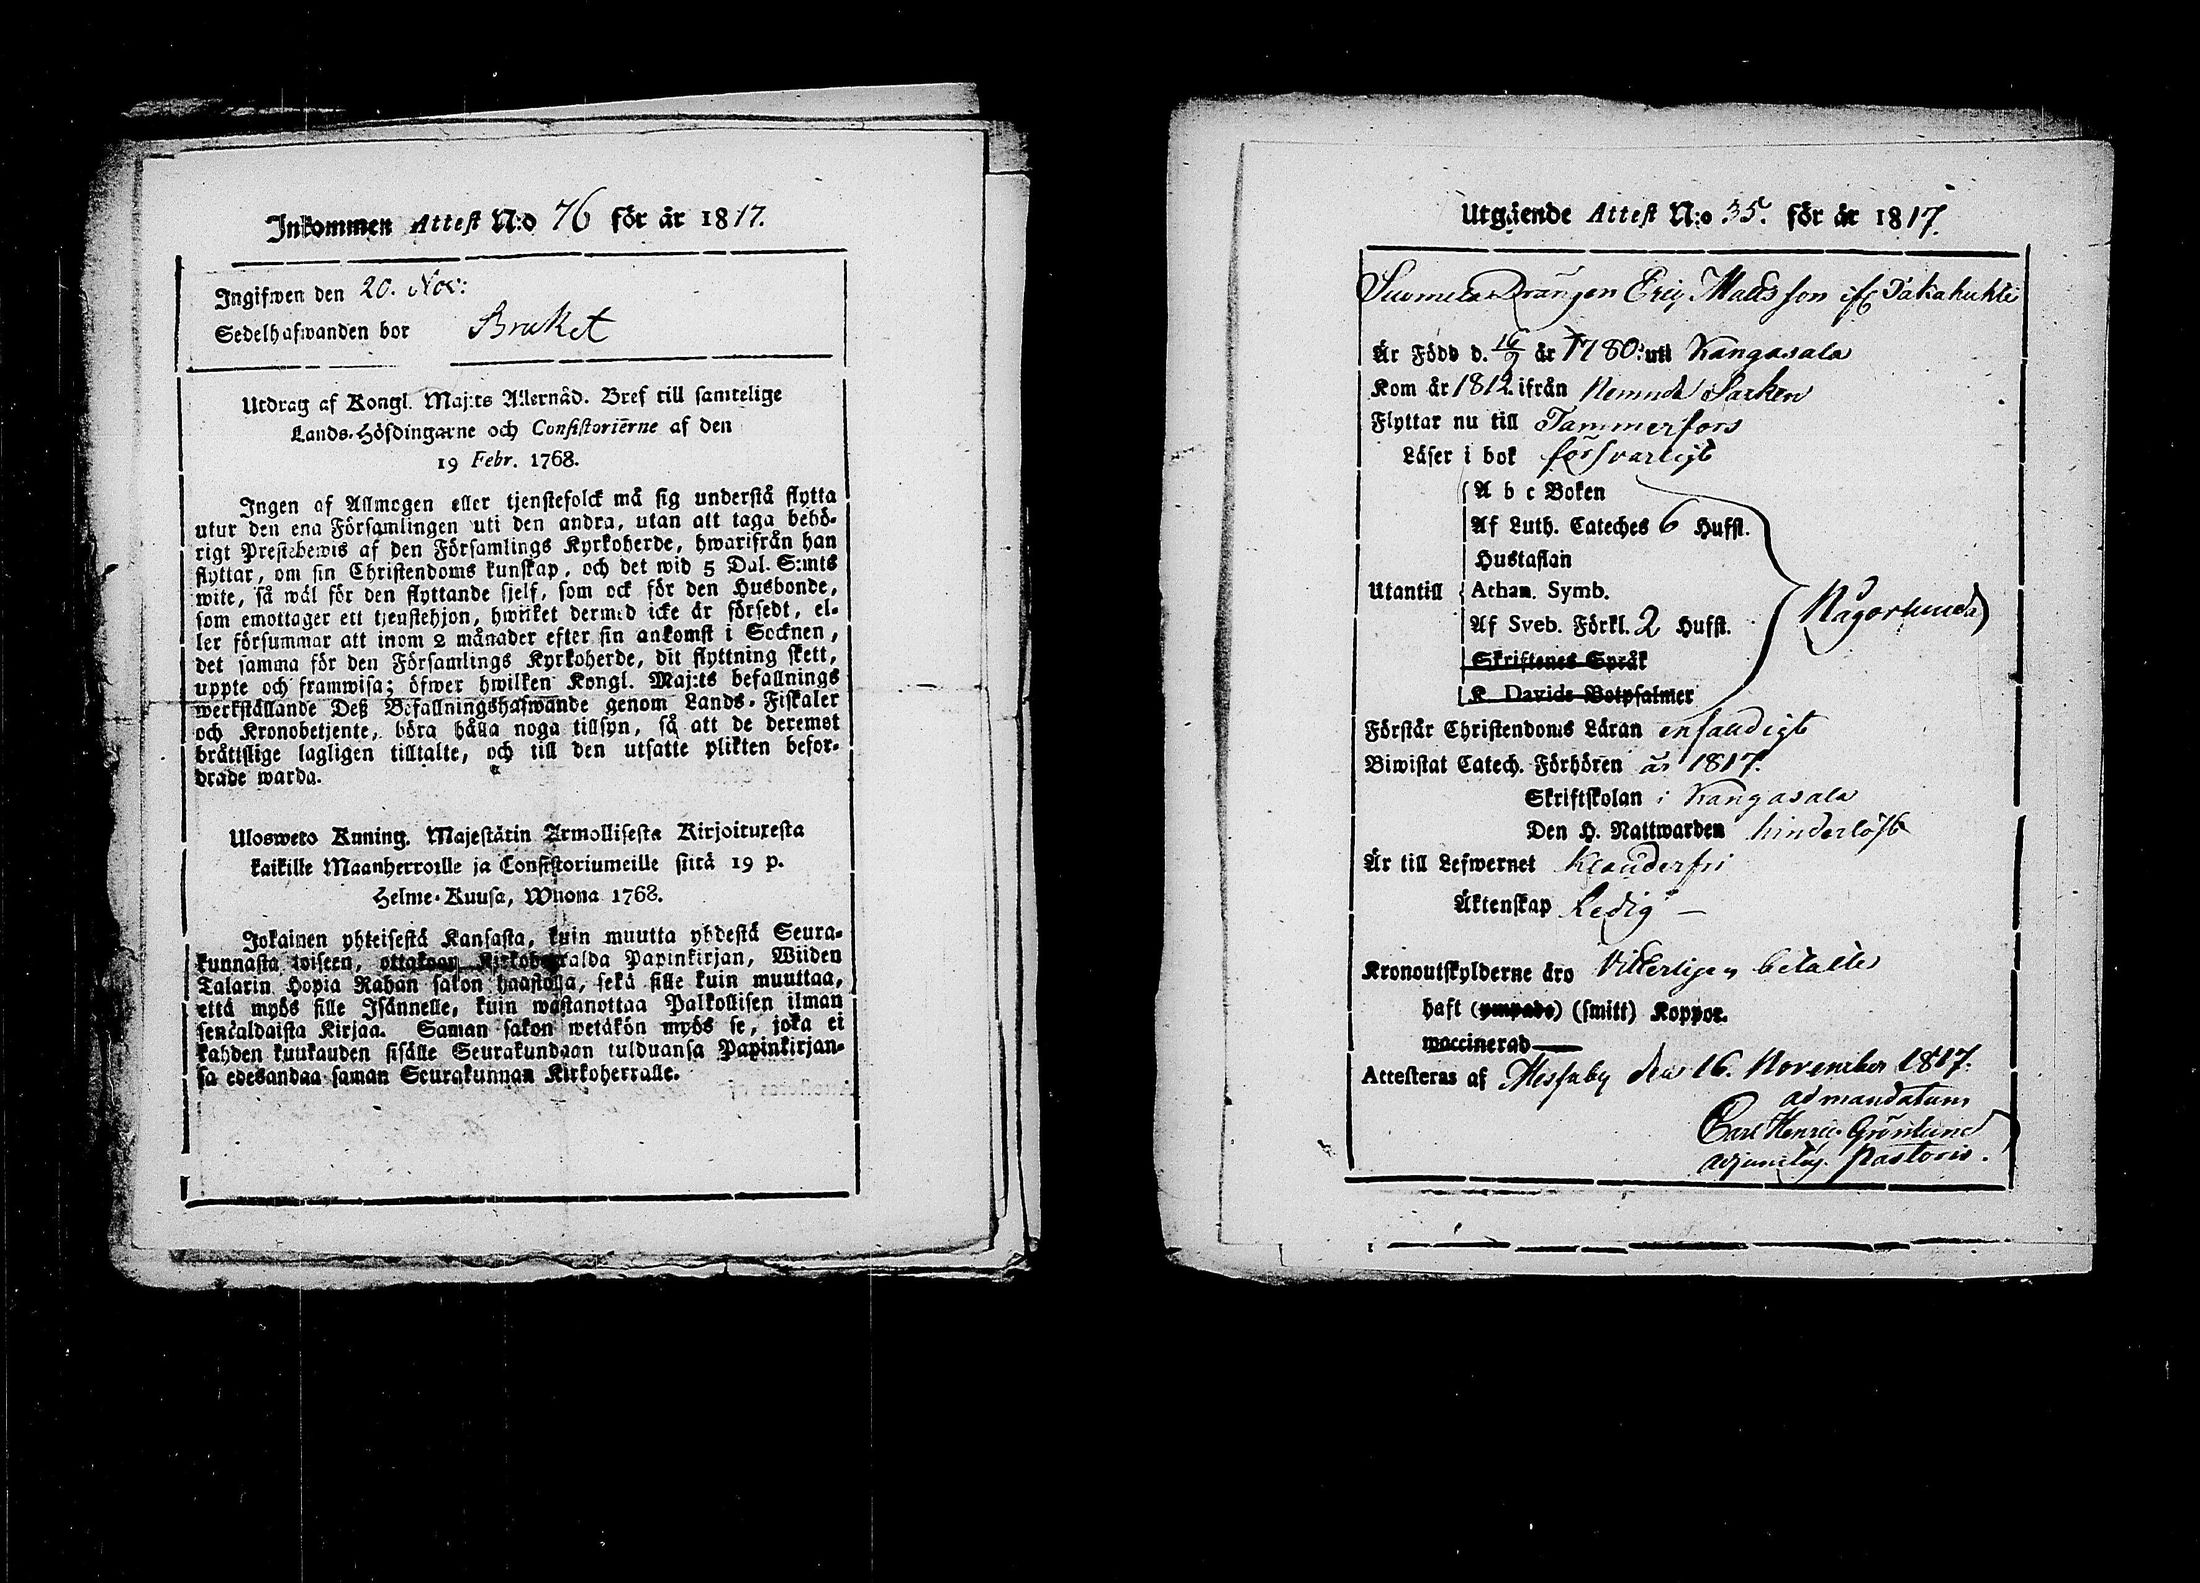 Inkommen Attest N:o 76 för år 1817.
Ingifwen den 20. Nov:
Sedelhafwanden bor Bruket
Utdrag af Kongl. Maj:ts Allernåd. Bref till samtelige
Lands-Höfdingarne och Consistorierne af den
19 Febr. 1768.
Ingen af Allmogen eller tjenstefolck må sig understå flytta
utur den ena Församlingen uti den andra, utan att taga behö-
rigt Prestebewis af den Församlings Kyrkoherde, hwarifrån han
flyttar, om sin Christendoms kunskap, och det wid 5 Dal. S:mts
wite, så wäl för den flyttande sjelf, som ock för den Husbonde,
som emottager ett tjenstehjon, hwilket dermed icke är försedt, el-
ler försummar att inom 2 månader efter sin ankomst i Socknen,
det samma för den Församlings Kyrkoherde, dit flyttning skett,
uppte och framwisa; öfwer hwilken Kongl. Maj:ts befallnings
werkställande Deß Befallningshafwande genom Lands-Fiskaler
och Kronobetjente, böra hålla noga tillsyn, så att de deremot
brättslige lagligen tilltalte, och till den utsatte plikten befor-
drade warda.
Ulosweto Kuning. Majestätin Armollisesta Kirjoituxesta
kaikille Maanherroille ja Consistoriumeille siitä 19 p.
Helme-Kuusa, Wuona 1768.
Jokainen yhteisestä Kansasta, kuin muutta yhdestä Seura-
kunnasta toiseen, ottakaan Kirkoherralda Papinkirjan, Wiiden
Talarin Hopia Rahan sakon haastolla, sekä sille kuin muuttaa,
että myös sille Isännelle, kuin wastanottaa Palkollisen ilman
sencaldaista Kirjaa. Saman sakon wetäkön myös se, joka ei
kahden kuukauden sisälle Seurakundaan tulduansa Papinkirjan-
sa edesandaa saman Seurakunnan Kirkoherralle.
Utgående Attest N:o 35. för år 1817.
Drängen Eric Matts son ifr Takahuhti
Är Född d. 16/9 år 1780: uti Kangasala
Kom år 1812. ifrån
Flyttar nu till Tammerfors
Läser i bok försvarligt
A b c Boken
Af Luth. Cateches 6 Hufst.
Hustaflan
Utantill Athan. Symb. Någorlunda
Af Sveb. Förkl. 2 Hufst.
Skriftenes Språk
K. Davids Botpsalmer
Förstår Christendoms Läran enfaldigt
Biwistat Catech. Förhören år 1817.
Skriftskolan i Kangasala
Den H. Nattwarden hinderlöst
Är till Lefwernet Klanderfri
Äktenskap Ledig —
Kronoutskylderne äro Vitterligen betalte
haft (ympade) (smitt) Koppor.
waccinerad
Attesteras af Messuby den 16. November 1817.
ad mandatum
Carl Henric Grönlund
adjunctus Pastoris.